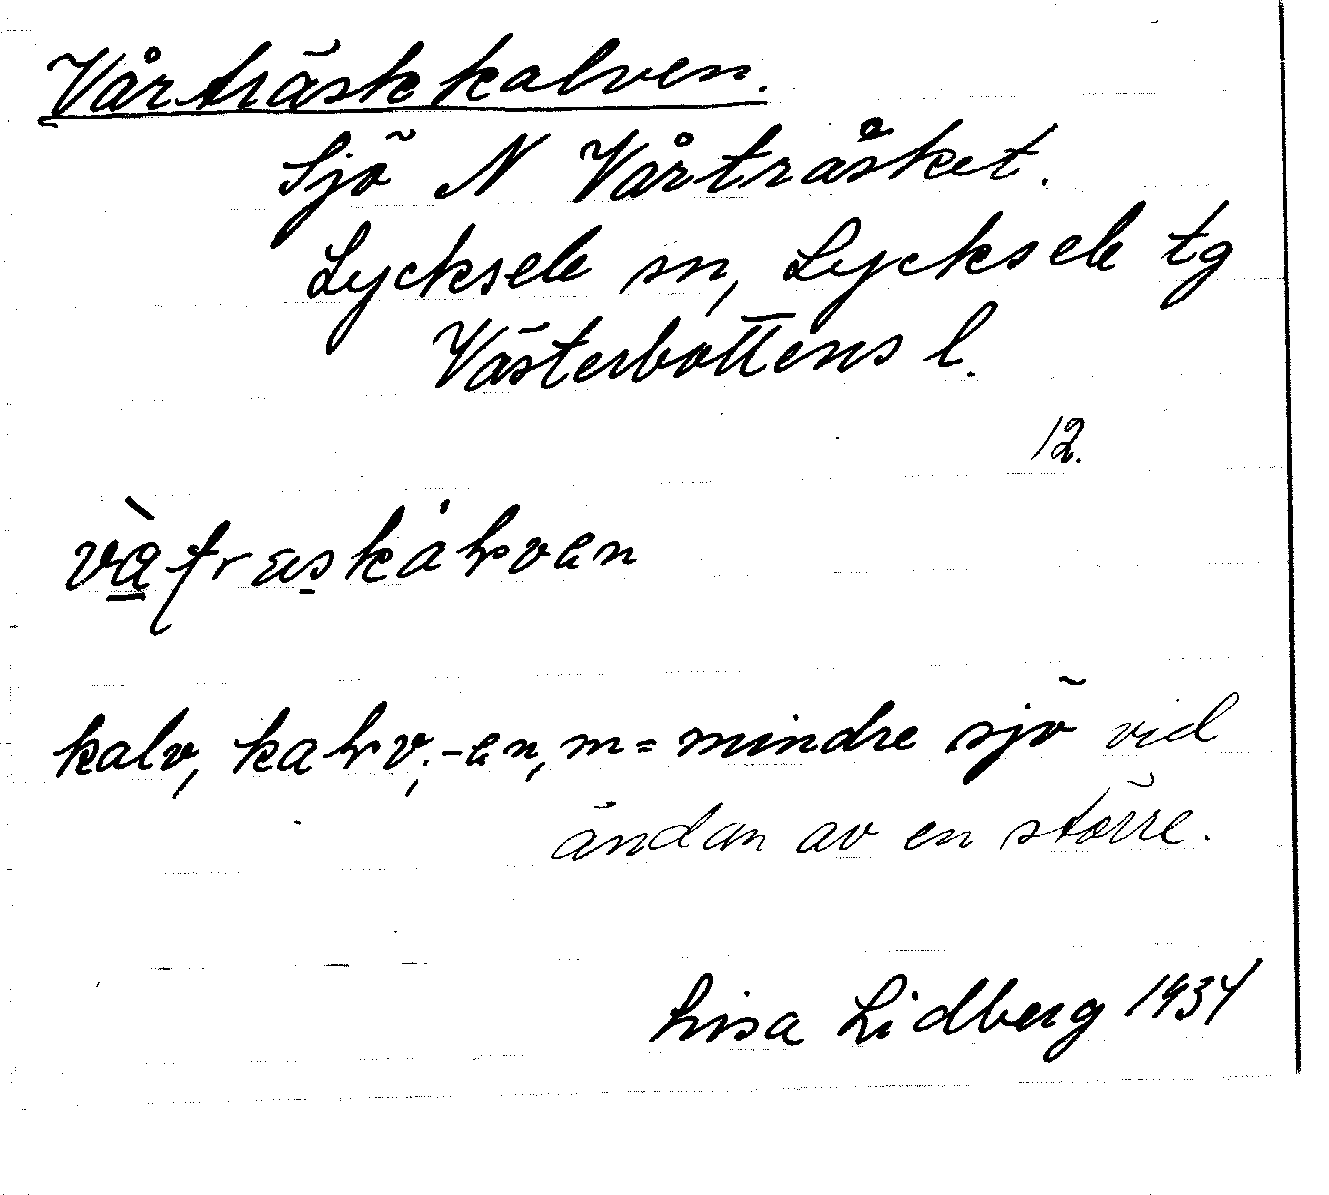 Vårträskkalven.
Sjö N Vårträsket.
Lycksele sn, Lycksele tg
Västerbottens l.
12.
kalv, kahv, -en, m = mindre sjö vid
ändan av en större.
Lisa Lidberg 1934